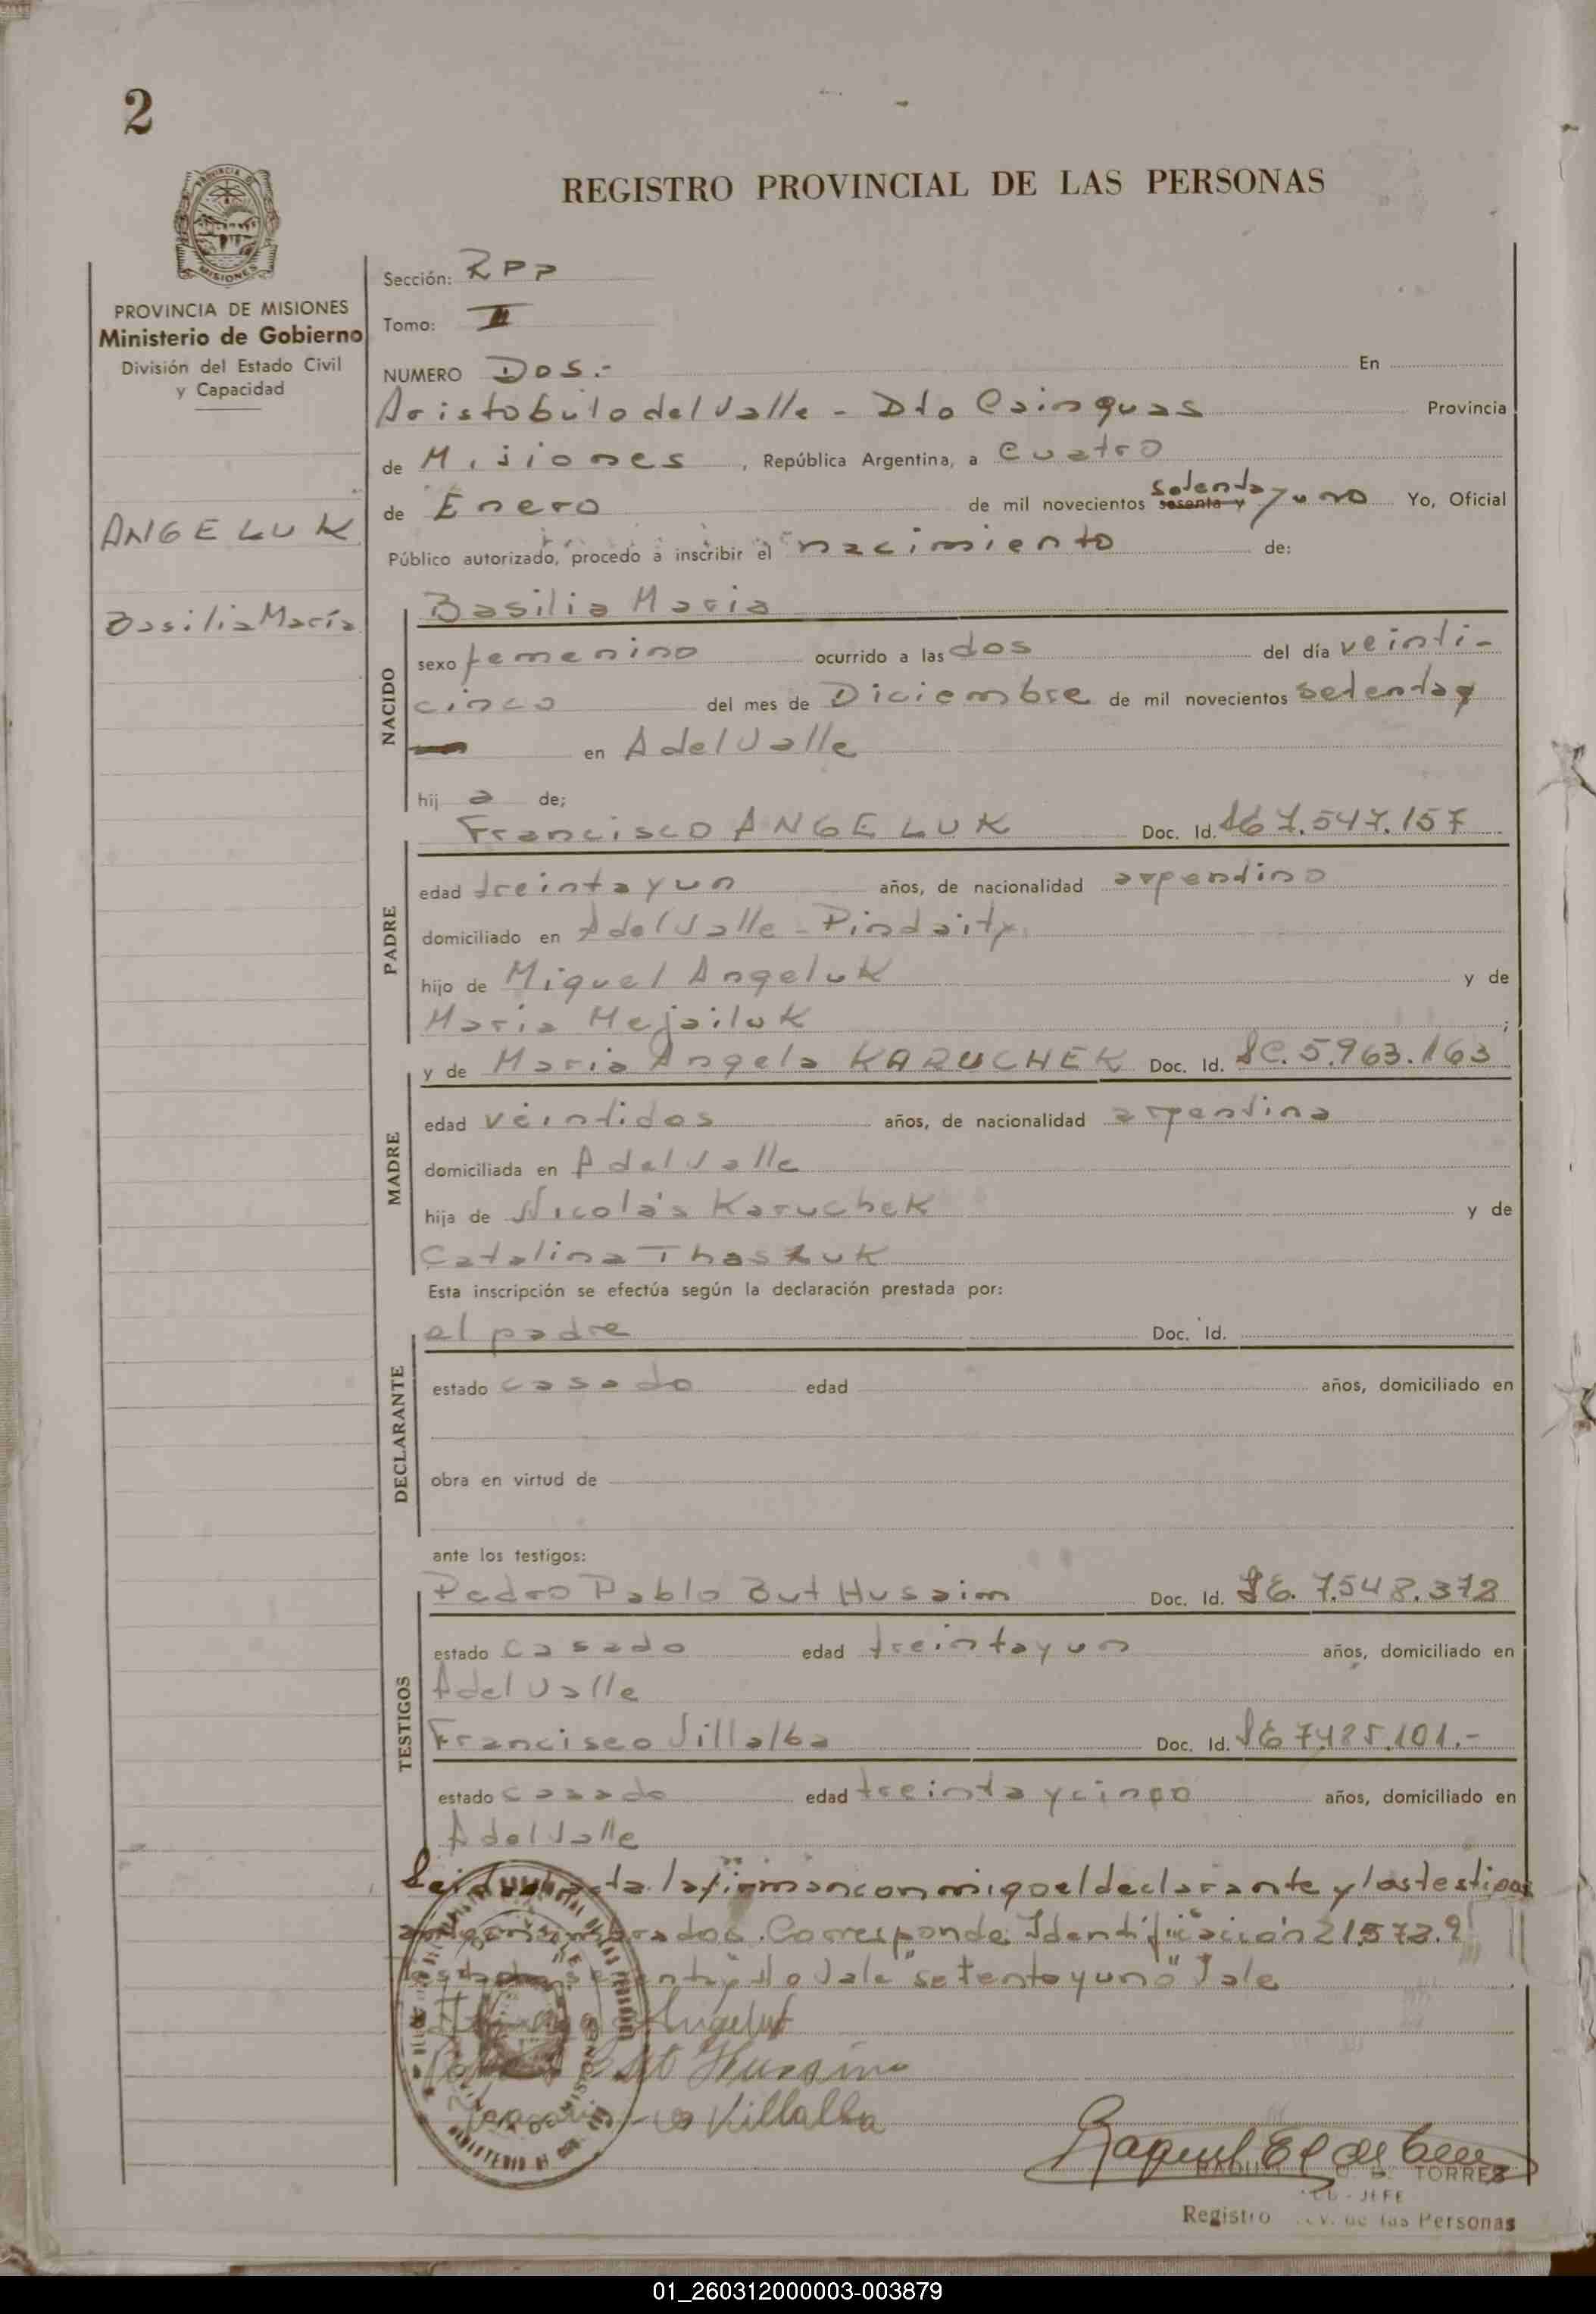 2
REGISTRO PROVINCIAL DE LAS PERSONAS
PROVINCIA DE MISIONES
Ministerio de Gobierno
División del Estado Civil
y Capacidad
ANGELUK
Basilia María
Sección: RPP
Tomo: II
NUMERO Dos.- En
Aristobulo del Valle - Dto Cainguas Provincia
de Misiones, República Argentina, a Cuatro
de Enero de mil novecientos sesenta y setenta y uno Yo, Oficial
Público autorizado, procedo a inscribir el nacimiento de:
NACIDO
Basilia Maria
sexo femenino ocurrido a las dos del día veinti-
cinco del mes de Diciembre de mil novecientos setenta y
en A del Valle
hij a de;
PADRE
Francisco ANGELUK Doc. Id. 7.547.157
edad treinta y un años, de nacionalidad argentino
domiciliado en A del Valle - Pindaity
hijo de Miguel Angeluk y de
Maria Mejailuk ;
MADRE
y de Maria Angela KARUCHEK Doc. Id. LC. 5.963.163
edad veintidos años, de nacionalidad argentina
domiciliada en A del Valle
hija de Nicolás Karuchek y de
Catalina
Esta inscripción se efectúa según la declaración prestada por:
DECLARANTE
el padre Doc. Id.
estado casado edad años, domiciliado en
obra en virtud de
ante los testigos:
TESTIGOS
Pedro Pablo But Husaim Doc. Id. LE. 7.548.372
estado casado edad treinta y un años, domiciliado en
A del Valle
Francisco Villalba Doc. Id. LE 7.485.101.-
estado casado edad treinta y cinco años, domiciliado en
A del Valle
Leida el acta la firman conmigo el declarante y los testigos
Corresponde Identificación 21.573.9
"setenta y uno" Vale
Angeluk
But Husaim
Villalba
TORRES
JEFE
Registro de las Personas
01_260312000003-003879